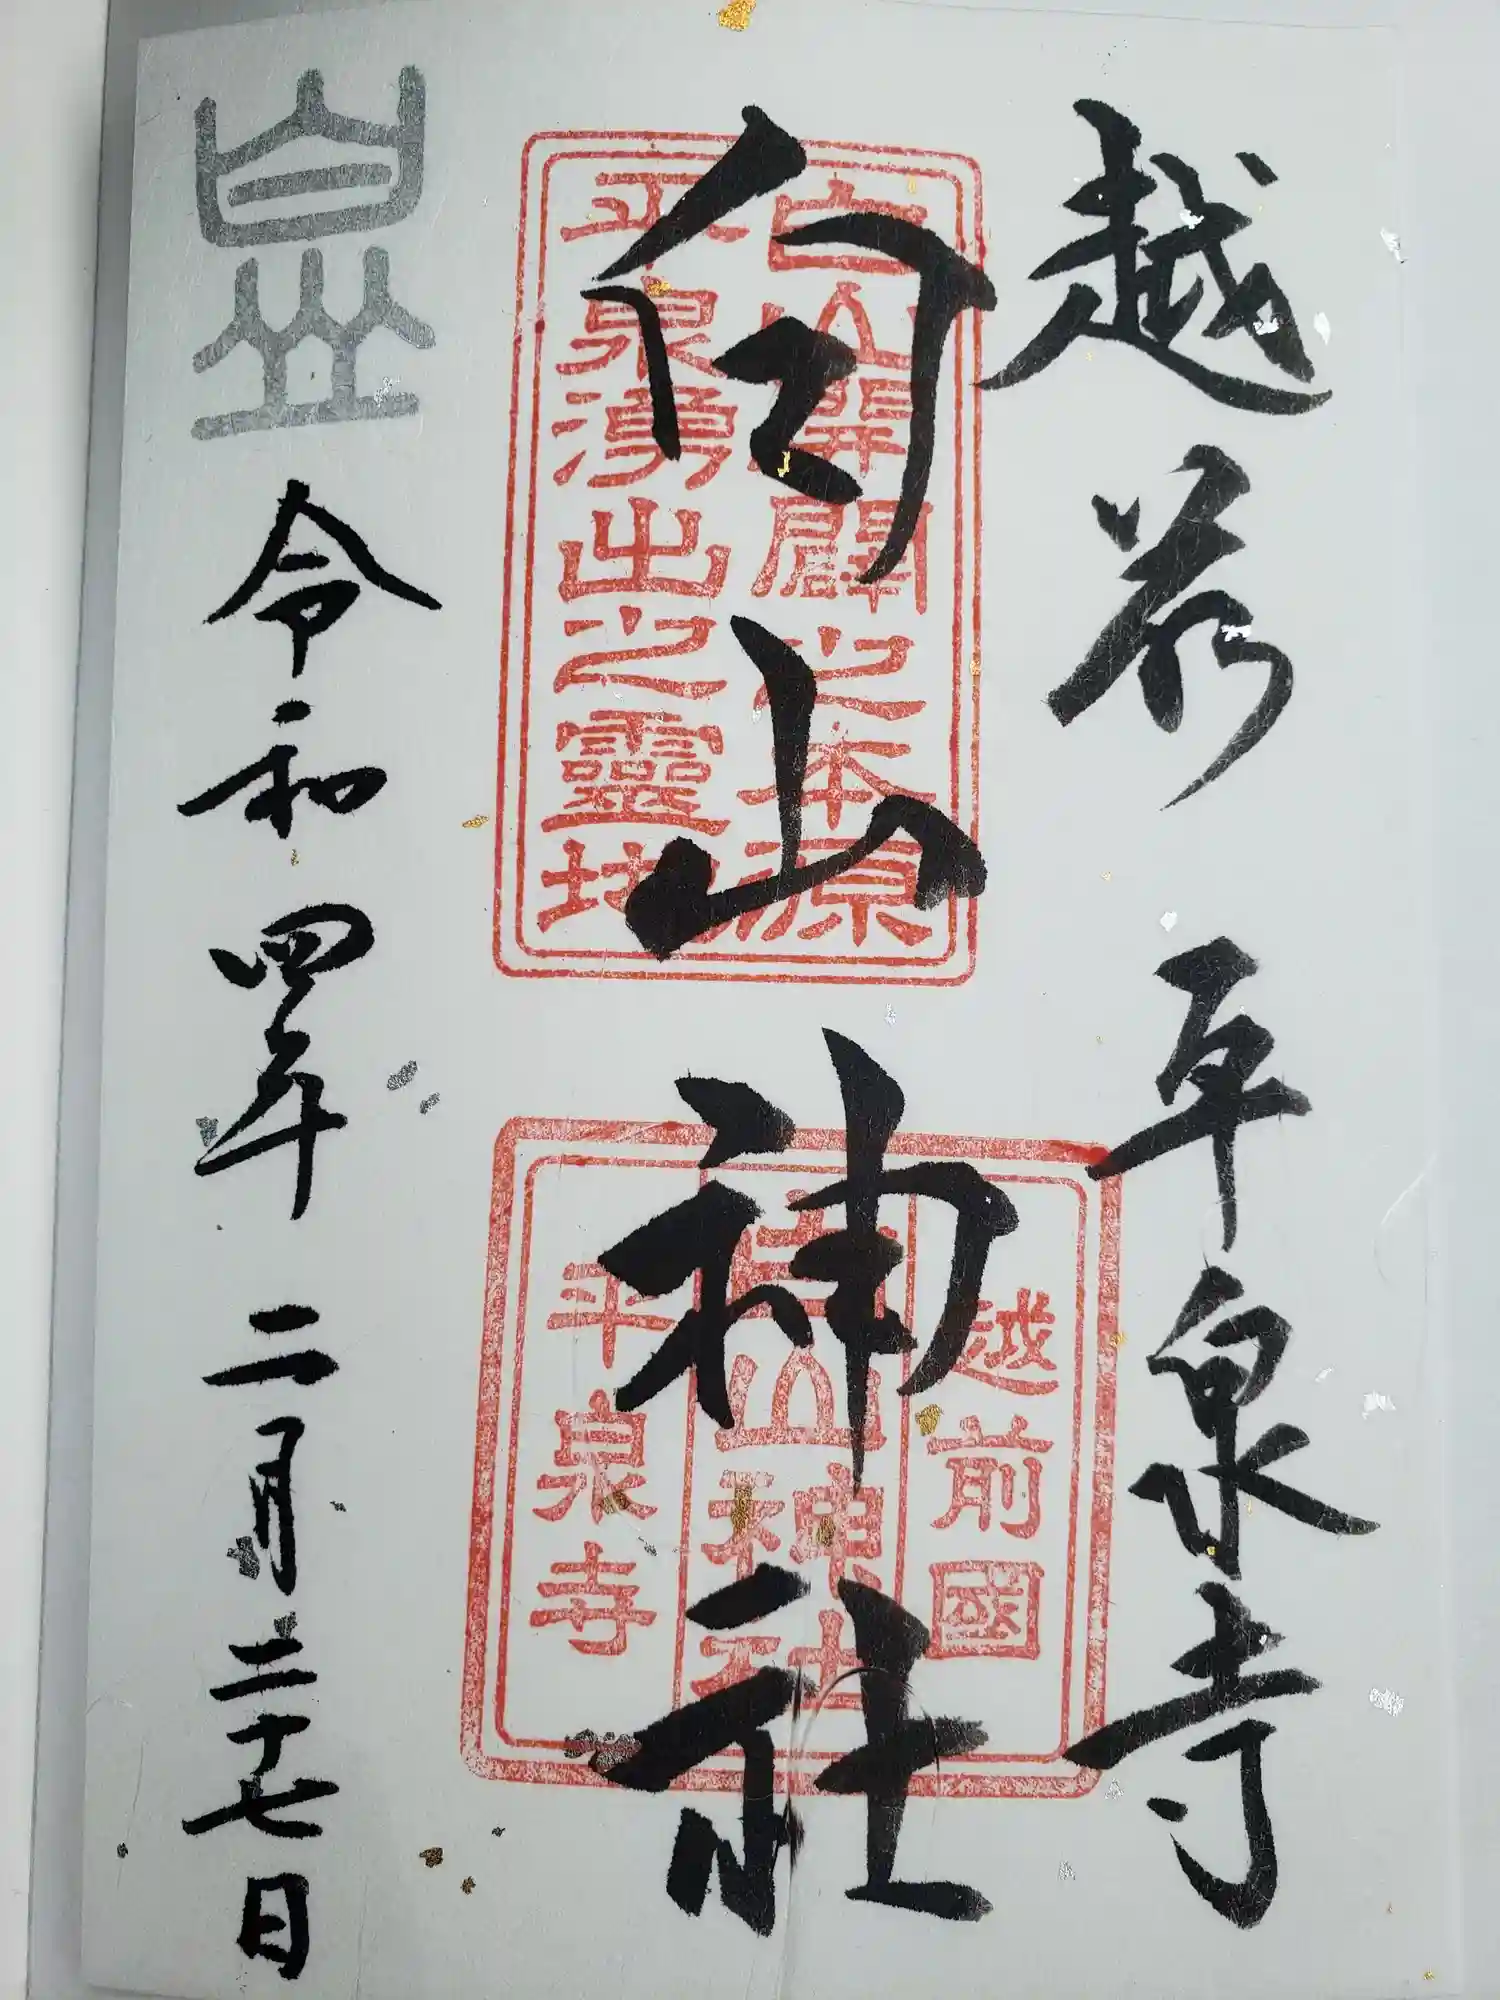 越前 平泉寺
白山神社
白山開闢之本源
平泉湧出之靈地
越前國
白山神社
平泉寺
令和四年 二月二十七日